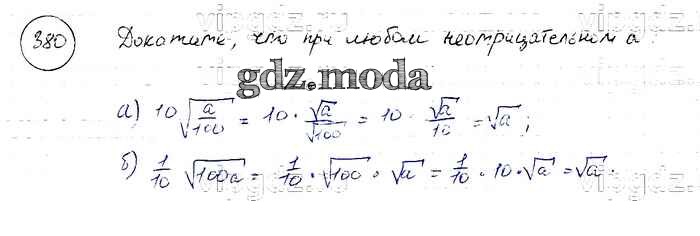 380 Докажите, что при любом неотрицательном a
gdz.moda
а) 10 √(a/100) = 10 · √a/√100 = 10 · √a/10 = √a ;
б) 1/10 √100a = 1/10 · √100 · √a = 1/10 · 10 · √a = √a .